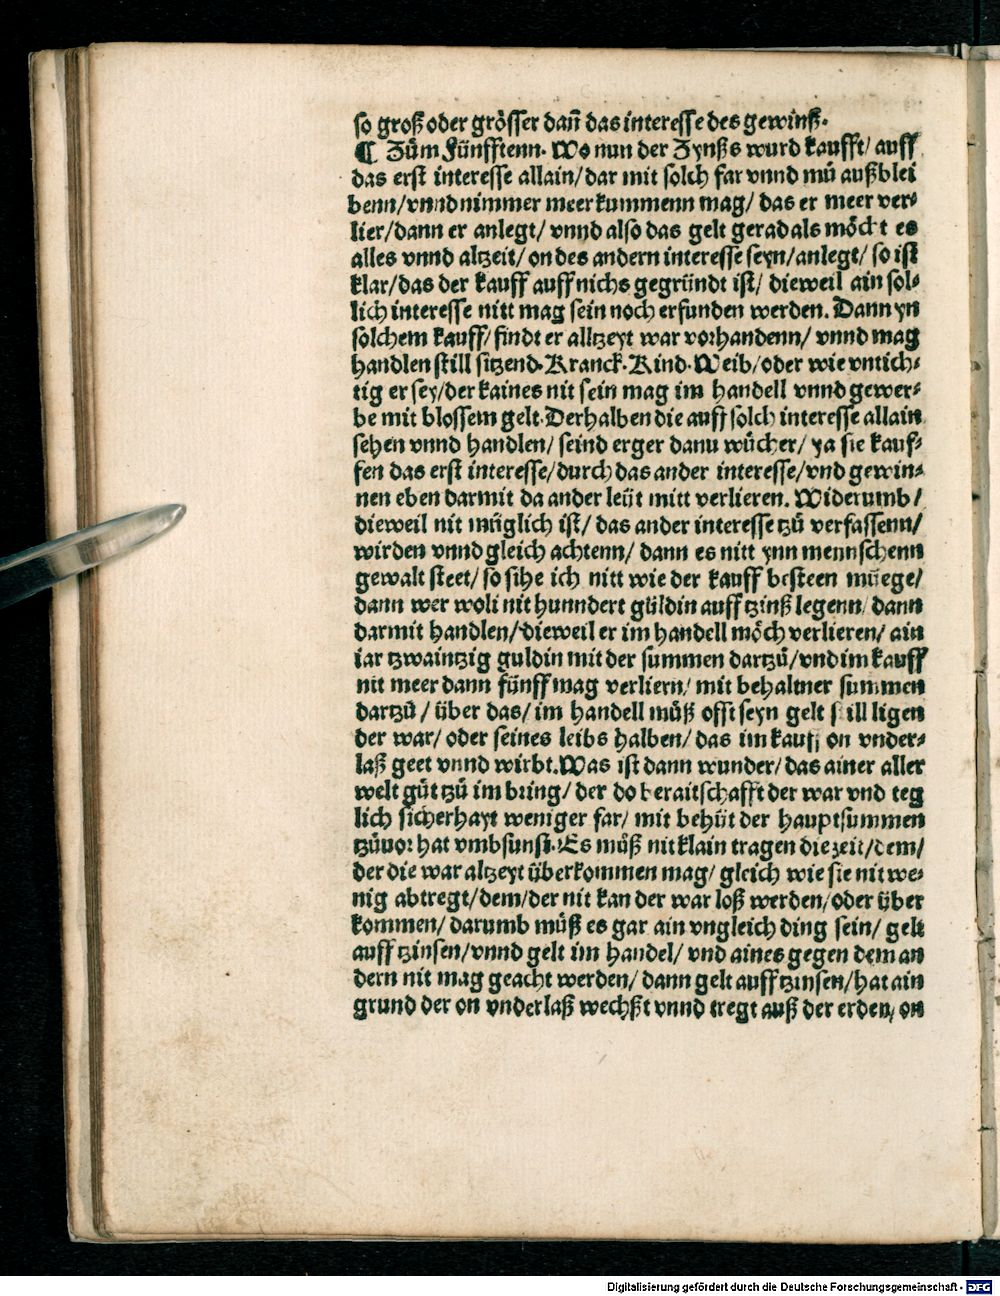 so groß oder grösser dañ das interesse des gewinß.
¶ Zům Fünfftenn. Wo nun der Zynßs wurd kaufft/ auff
das erst interesse allain/dar mit solch far vnnd mü außblei
benn/vnnd nimmer meer kummenn mag/ das er meer ver⸗
lier/dann er anlegt/ vnnd also das gelt gerad als möcht es
alles vnnd altzeit/ on des andern interesse seyn/anlegt/ so ist
klar/das der kauff auff nichs gegründt ist/ dieweil ain sol⸗
lich interesse nitt mag sein noch erfunden werden. Dann yn
solchem kauff/findt er alltzeyt war vorhandenn/ vnnd mag
handlen still sitzend. Kranck. Kind. Weib/oder wie vntich⸗
tig er sey/der kaines nit sein mag im handell vnnd gewer⸗
be mit blossem gelt. Derhalben die auff solch interesse allain
sehen vnnd handlen/ seind erger danu wůcher/ ya sie kauf⸗
fen das erst interesse/durch das ander interesse/vnd gewin⸗
nen eben darmit da ander leüt mitt verlieren. Widerumb/
dieweil nit müglich ist/ das ander interesse tzů verfassenn/
wirden vnnd gleich achtenn/ dann es nitt ynn mennschenn
gewalt steet/ so sihe ich nitt wie der kauff besteen müege/
dann wer wolt nit hunndert güldin auff tzinß legenn/ dann
darmit handlen/dieweil er im handell möch verlieren/ ain
iar tzwaintzig guldin mit der summen dartzů/vnd im kauff
nit meer dann fünff mag verliern/ mit behaltner summen
dartzů/ über das/ im handell můß offt seyn gelt still ligen
der war/ oder seines leibs halben/ das im kauff on vnder⸗
laß geet vnnd wirbt. Was ist dann wunder/ das ainer aller
welt gůt tzů im bring/ der do beraitschafft der war vnd teg
lich sicherhayt weniger far/ mit behůt der hauptsummen
tzůuor hat vmbsunst. Es můß nit klain tragen die zeit/dem/
der die war altzeyt überkommen mag/ gleich wie sie nit we⸗
nig abtregt/dem/der nit kan der war loß werden/oder über
kommen/ darumb můß es gar ain vngleich ding sein/ gelt
auff tzinsen/vnnd gelt im handel/ vnd aines gegen dem an
dern nit mag geacht werden/ dann gelt auff tzinsen/hat ain
grund der on vnderlaß wechßt vnnd tregt auß der erden/ on
Digitalisierung gefördert durch die Deutsche Forschungsgemeinschaft - DFG